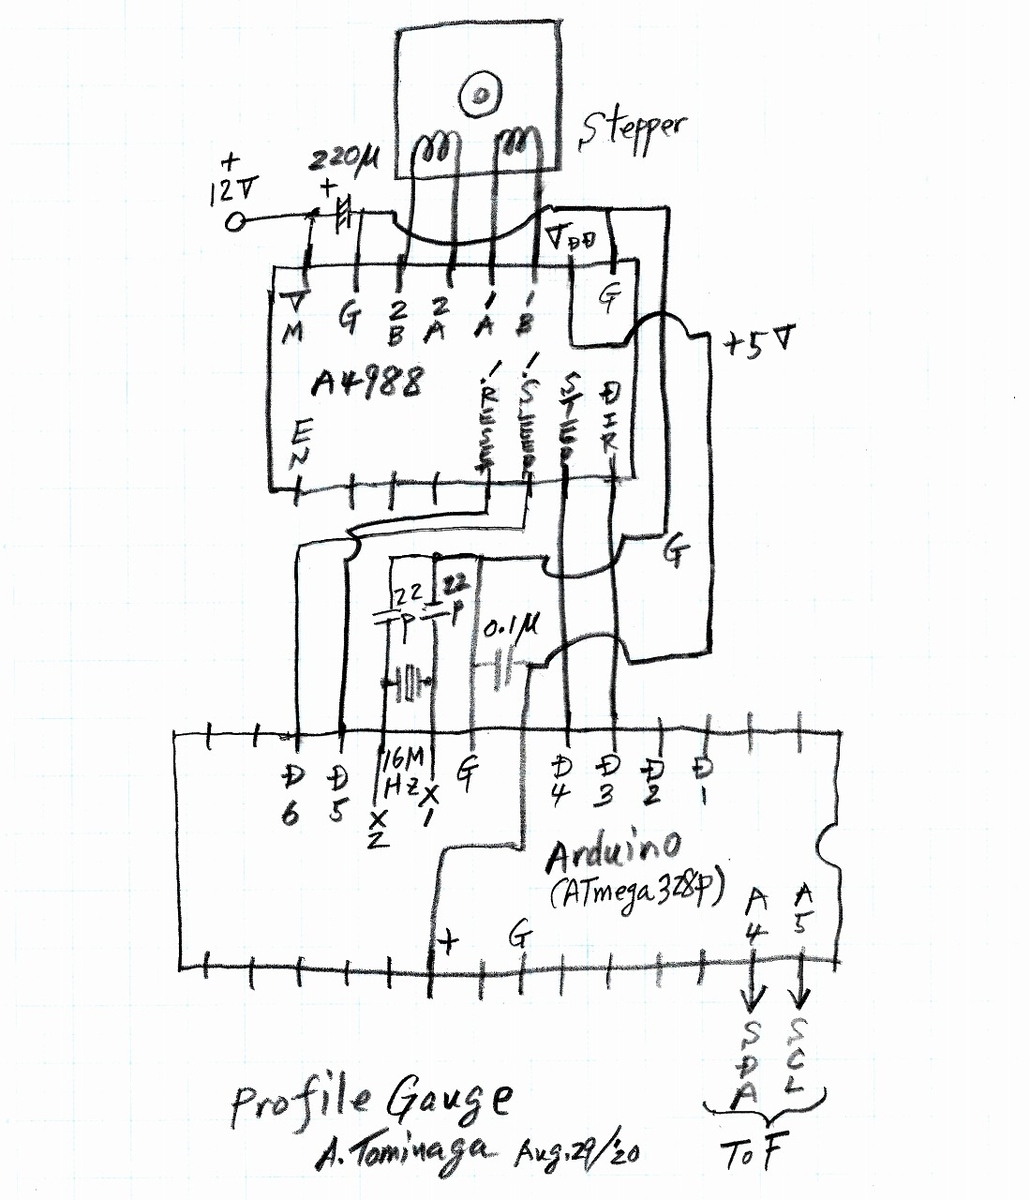 Stepper
220μ
+
+
12V
VDD
VM
G
2B
2A
1A
1B
G
+5V
A4988
EN
!RESET
!SLEEP
STEP
DIR
G
22P
22P
0.1μ
16MHZ
D6
D5
X2
X1
G
D4
D3
D2
D1
Arduino
(ATmega328P)
A4
A5
+
G
SDA
SCL
ToF
Profile Gauge
A.Tominaga Aug.29/'20